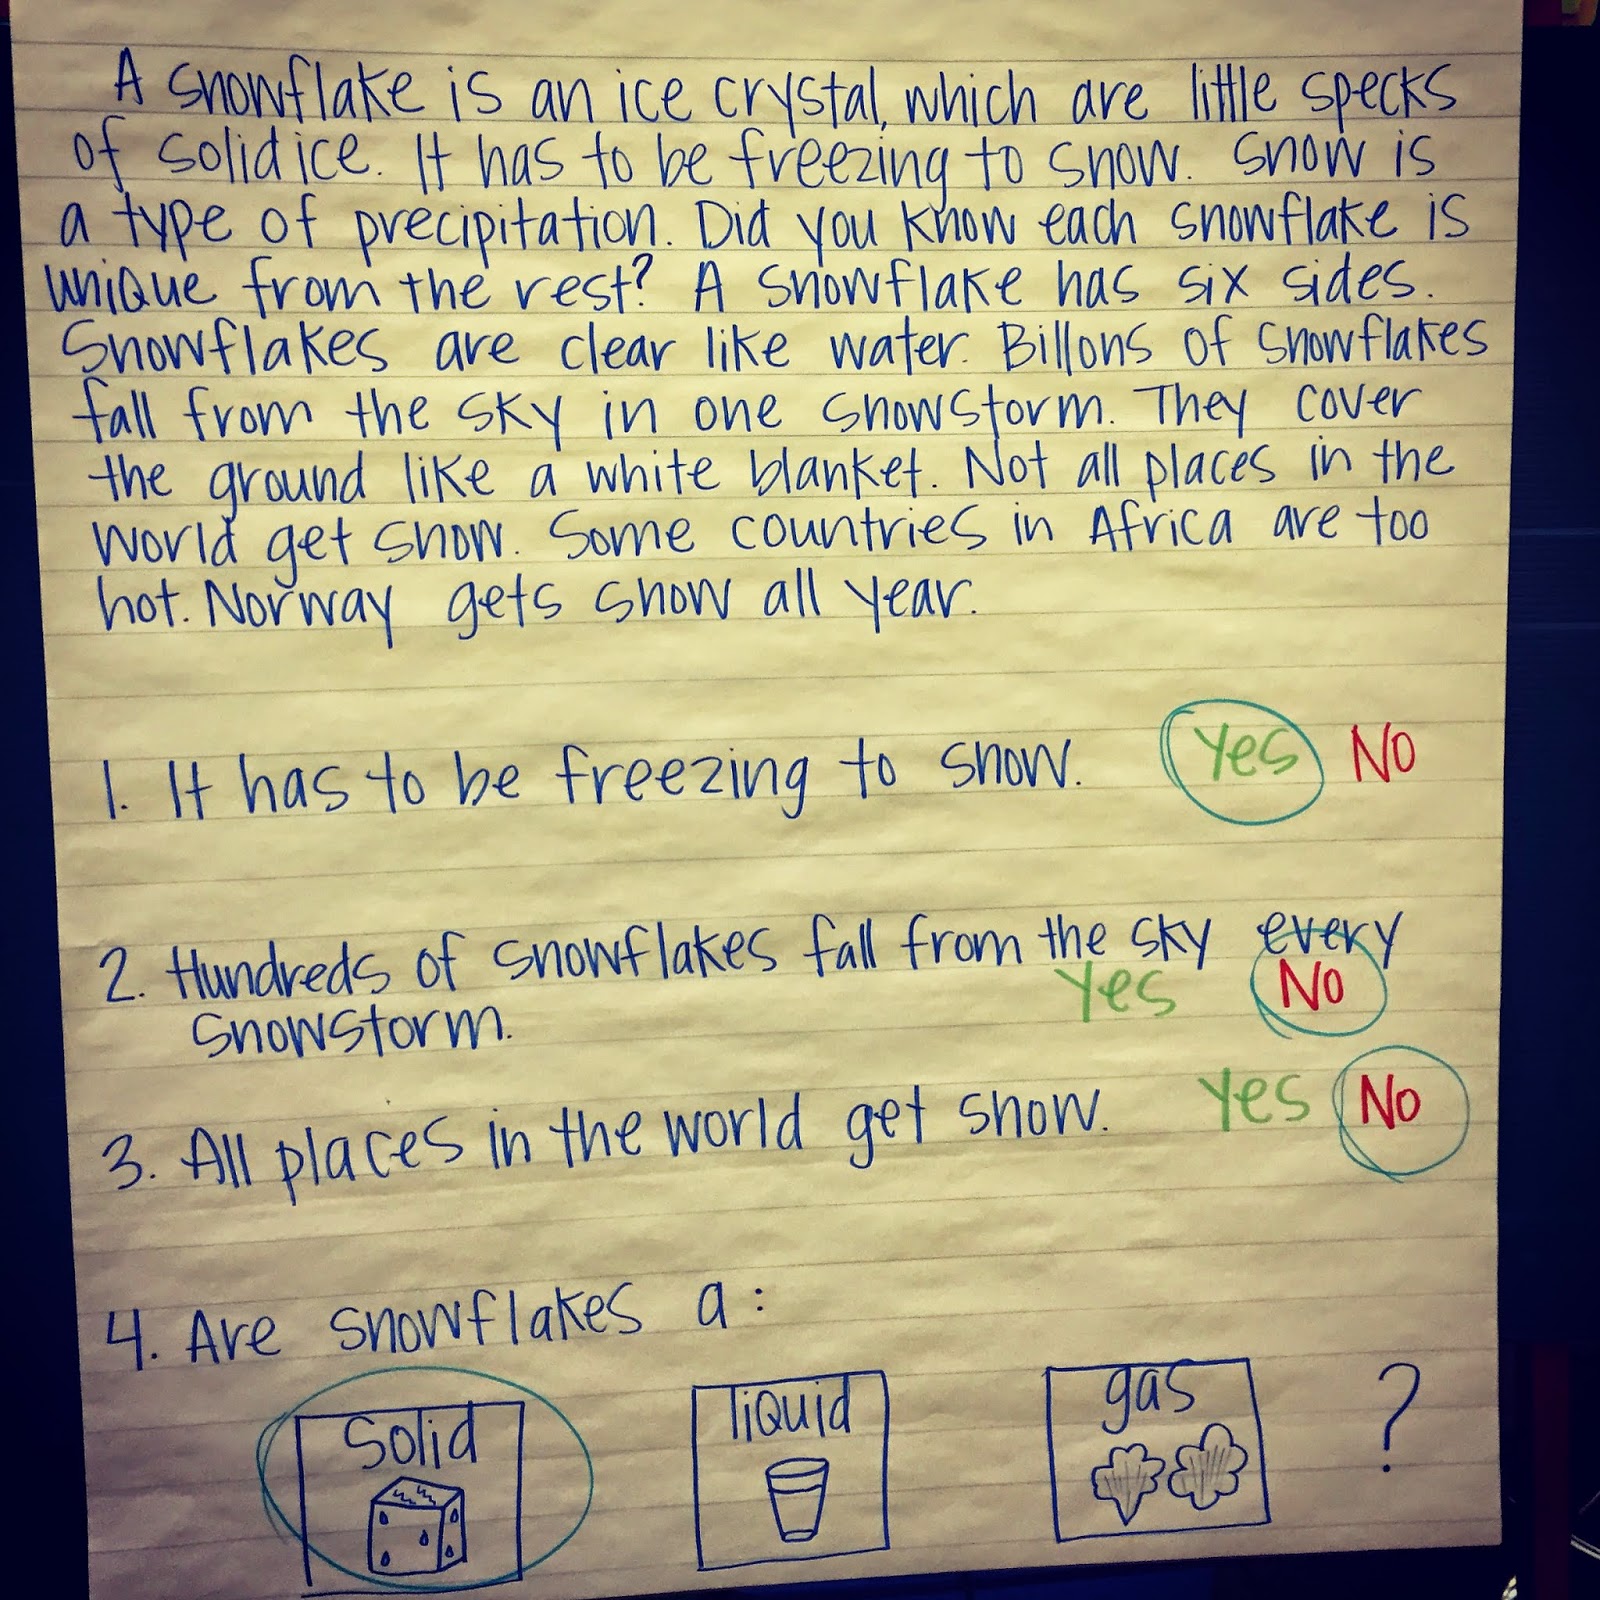 A snowflake is an ice crystal, which are little specks
of solid ice. It has to be freezing to snow. Snow is
a type of precipitation. Did you know each snowflake is
unique from the rest? A snowflake has six sides.
Snowflakes are clear like water. Billons of snowflakes
fall from the sky in one snowstorm. They cover
the ground like a white blanket. Not all places in the
world get snow. Some countries in Africa are too
hot. Norway gets snow all year.
1. It has to be freezing to snow. Yes No
2. Hundreds of snowflakes fall from the sky every
snowstorm. Yes No
3. All places in the world get snow. Yes No
4. Are snowflakes a:
solid liquid gas ?